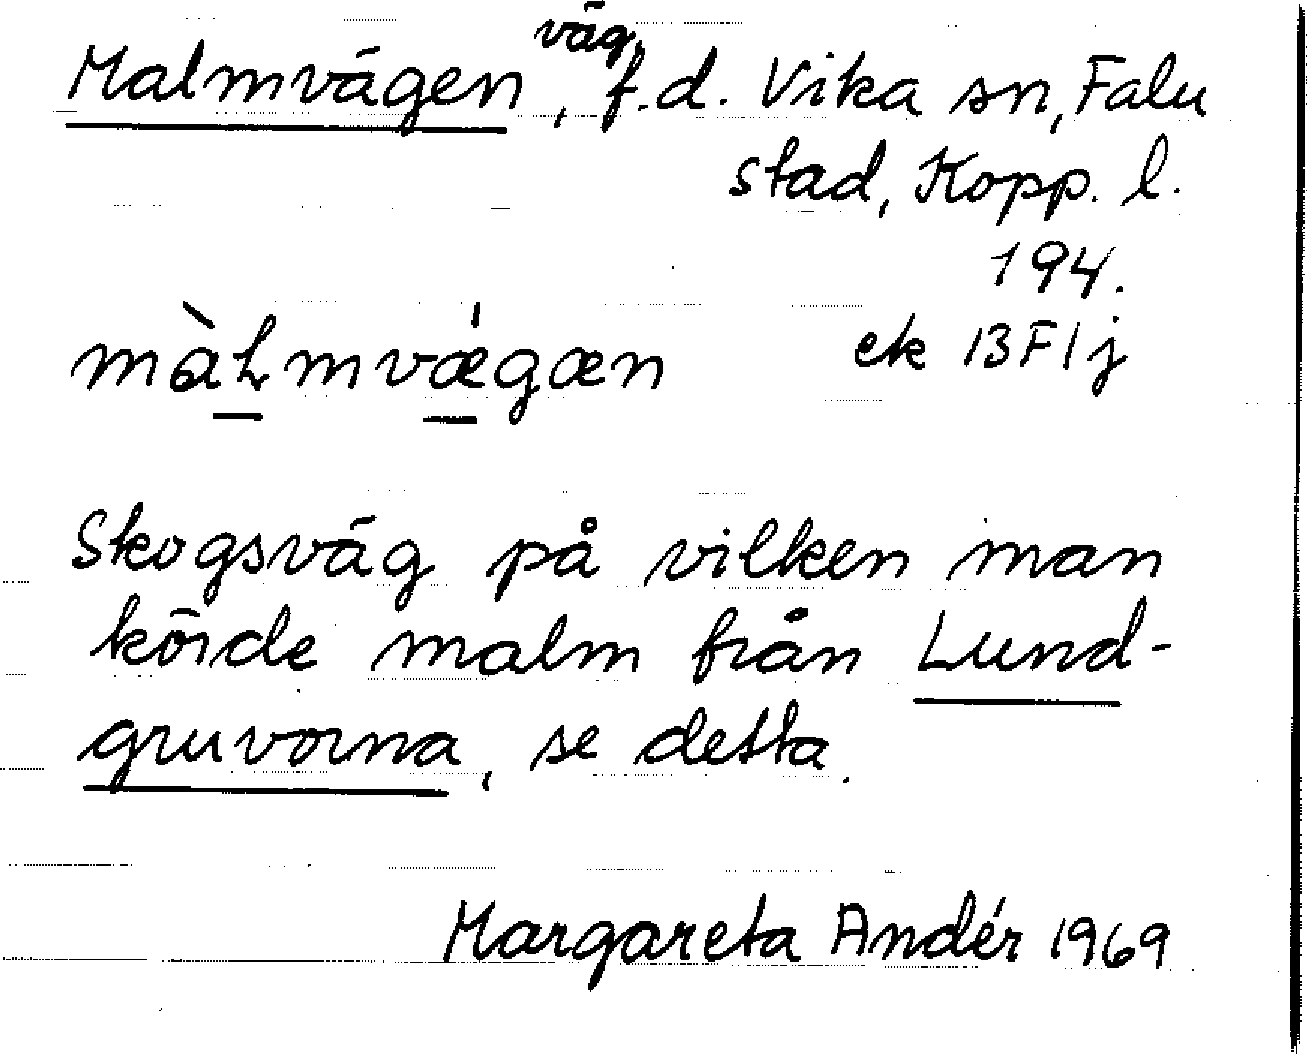 Malmvägen, väg, f.d. Vika sn, Falu
stad, Kopp. l.
194.
màLmvǽgæn ek 13F1j
Skogsväg på vilken man
körde malm från Lund-
gruvorna, se detta.
Margareta Andér 1969